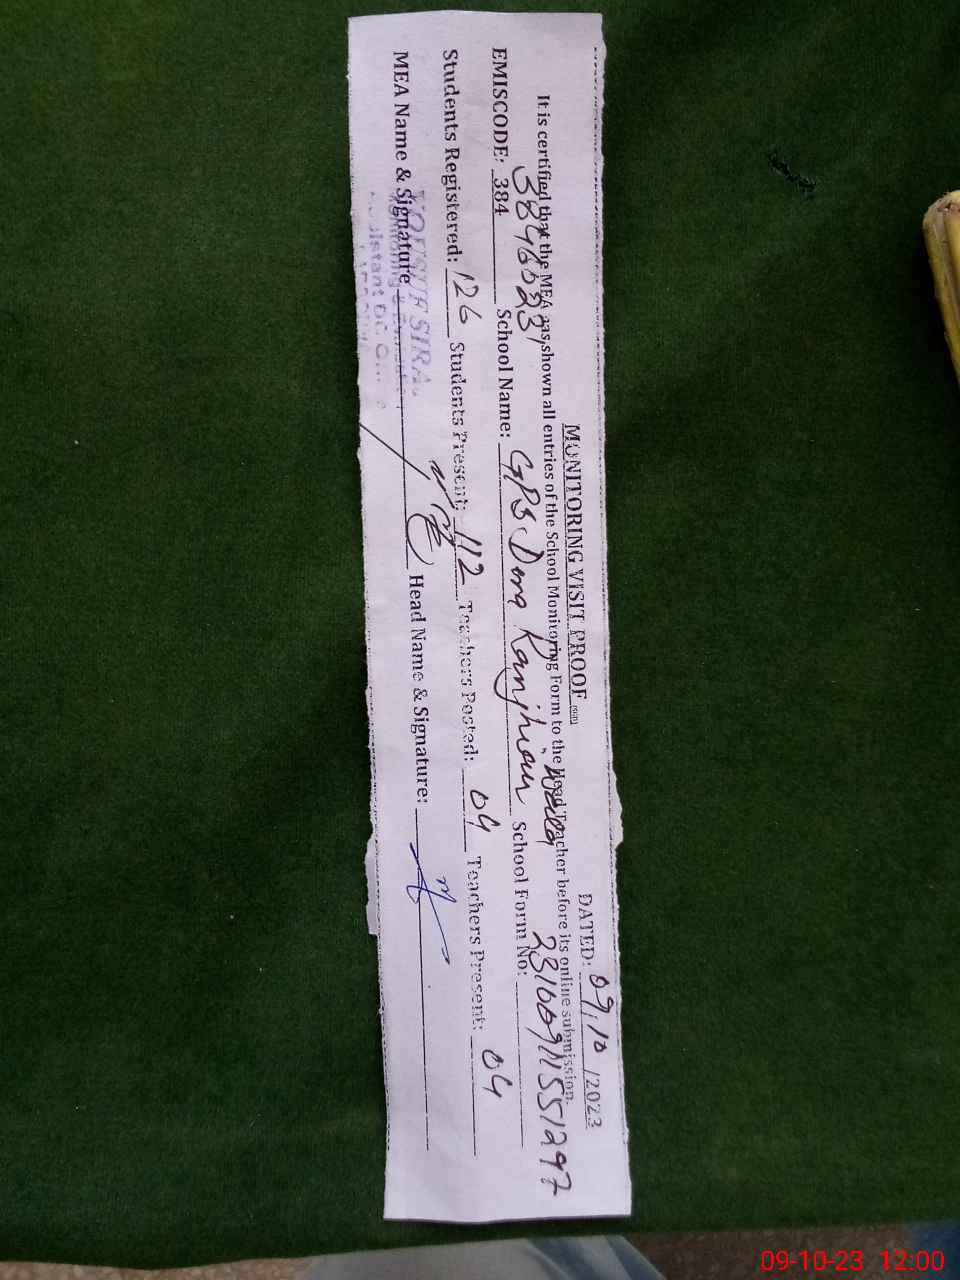 MONITORING VISIT PROOF
DATED: 09.10 /2023
It is certified that the MEA has shown all entries of the School Monitoring Form to the Head Teacher before its online submission.
EMISCODE: 384 School Name: GPS Dera Ranjhian wala School Form No: 23100911551297
Students Registered: 126 Students Present: 112 Teachers Posted: 04 Teachers Present: 04
MEA Name & Signature Head Name & Signature:
YOUSUF SIRAJ
09-10-23 12:00